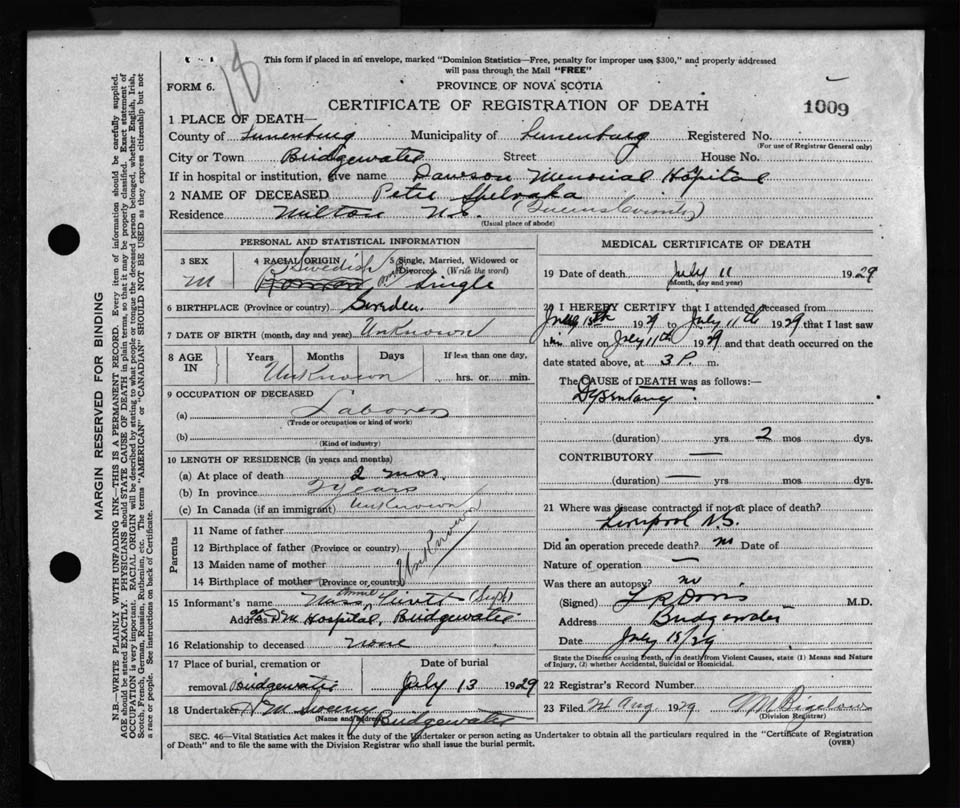 This form if placed in an envelope, marked "Dominion Statistics—Free, penalty for improper use, $300," and properly addressed
will pass through the Mail "FREE"
18
FORM 6.
PROVINCE OF NOVA SCOTIA
CERTIFICATE OF REGISTRATION OF DEATH
1009
1 PLACE OF DEATH—
County of Lunenburg Municipality of Lunenburg Registered No.
(For use of Registrar General only)
City or Town Bridgewater Street House No.
If in hospital or institution, give name Dawson Memorial Hospital
2 NAME OF DECEASED Pete
Residence Milton N.S. (Queens County)
(Usual place of abode)
PERSONAL AND STATISTICAL INFORMATION
3 SEX M
4 RACIAL ORIGIN Swedish
5 Single, Married, Widowed or Divorced (Write the word) Single
6 BIRTHPLACE (Province or country) Sweden
7 DATE OF BIRTH (month, day and year) Unknown
8 AGE IN Years Months Days If less than one day,
Unknown hrs. or min.
9 OCCUPATION OF DECEASED
(a) Laborer
(Trade or occupation or kind of work)
(b)
(Kind of industry)
10 LENGTH OF RESIDENCE (in years and months)
(a) At place of death 2 mos.
(b) In province 2 years
(c) In Canada (if an immigrant) Unknown
Parents
11 Name of father
12 Birthplace of father (Province or country)
13 Maiden name of mother
14 Birthplace of mother (Province or country)
Unknown
15 Informant's name Miss Annie (Supt)
Address D M Hospital, Bridgewater
16 Relationship to deceased none
17 Place of burial, cremation or Date of burial
removal Bridgewater July 13 1929
18 Undertaker
(Name and address) Bridgewater
MEDICAL CERTIFICATE OF DEATH
19 Date of death July 11 1929
(Month, day and year)
20 I HEREBY CERTIFY that I attended deceased from
1929 to July 11th 1929 that I last saw
him alive on July 11th 1929 and that death occurred on the
date stated above, at 3 P. m.
The CAUSE OF DEATH was as follows:—
Dysentary.
(duration) yrs 2 mos dys.
CONTRIBUTORY —
(duration) — yrs mos dys.
21 Where was disease contracted if not at place of death?
Liverpool N.S.
Did an operation precede death? no Date of
Nature of operation —
Was there an autopsy? no
(Signed) M.D.
Address Bridgewater
Date July 15/29
State the Disease causing Death, or in death from Violent Causes, state (1) Means and Nature
of Injury, (2) whether Accidental, Suicidal or Homicidal.
22 Registrar's Record Number
23 Filed Aug 1929 Bigelow
(Division Registrar)
SEC. 46—Vital Statistics Act makes it the duty of the Undertaker or person acting as Undertaker to obtain all the particulars required in the "Certificate of Registration
of Death" and to file the same with the Division Registrar who shall issue the burial permit.
(OVER)
MARGIN RESERVED FOR BINDING
N.B.—WRITE PLAINLY WITH UNFADING INK—THIS IS A PERMANENT RECORD. Every item of information should be carefully supplied.
AGE should be stated EXACTLY. PHYSICIANS should STATE CAUSE OF DEATH in plain terms, so that it may be properly classified. Exact statement of
OCCUPATION is very important. RACIAL ORIGIN will be described by stating to what people or tongue the deceased person belonged, whether English, Irish,
Scotch, French, German, Russian, Ruthenian, etc. The terms "AMERICAN" or "CANADIAN" SHOULD NOT BE USED as they express citizenship but not
a race or people. See instructions on back of Certificate.